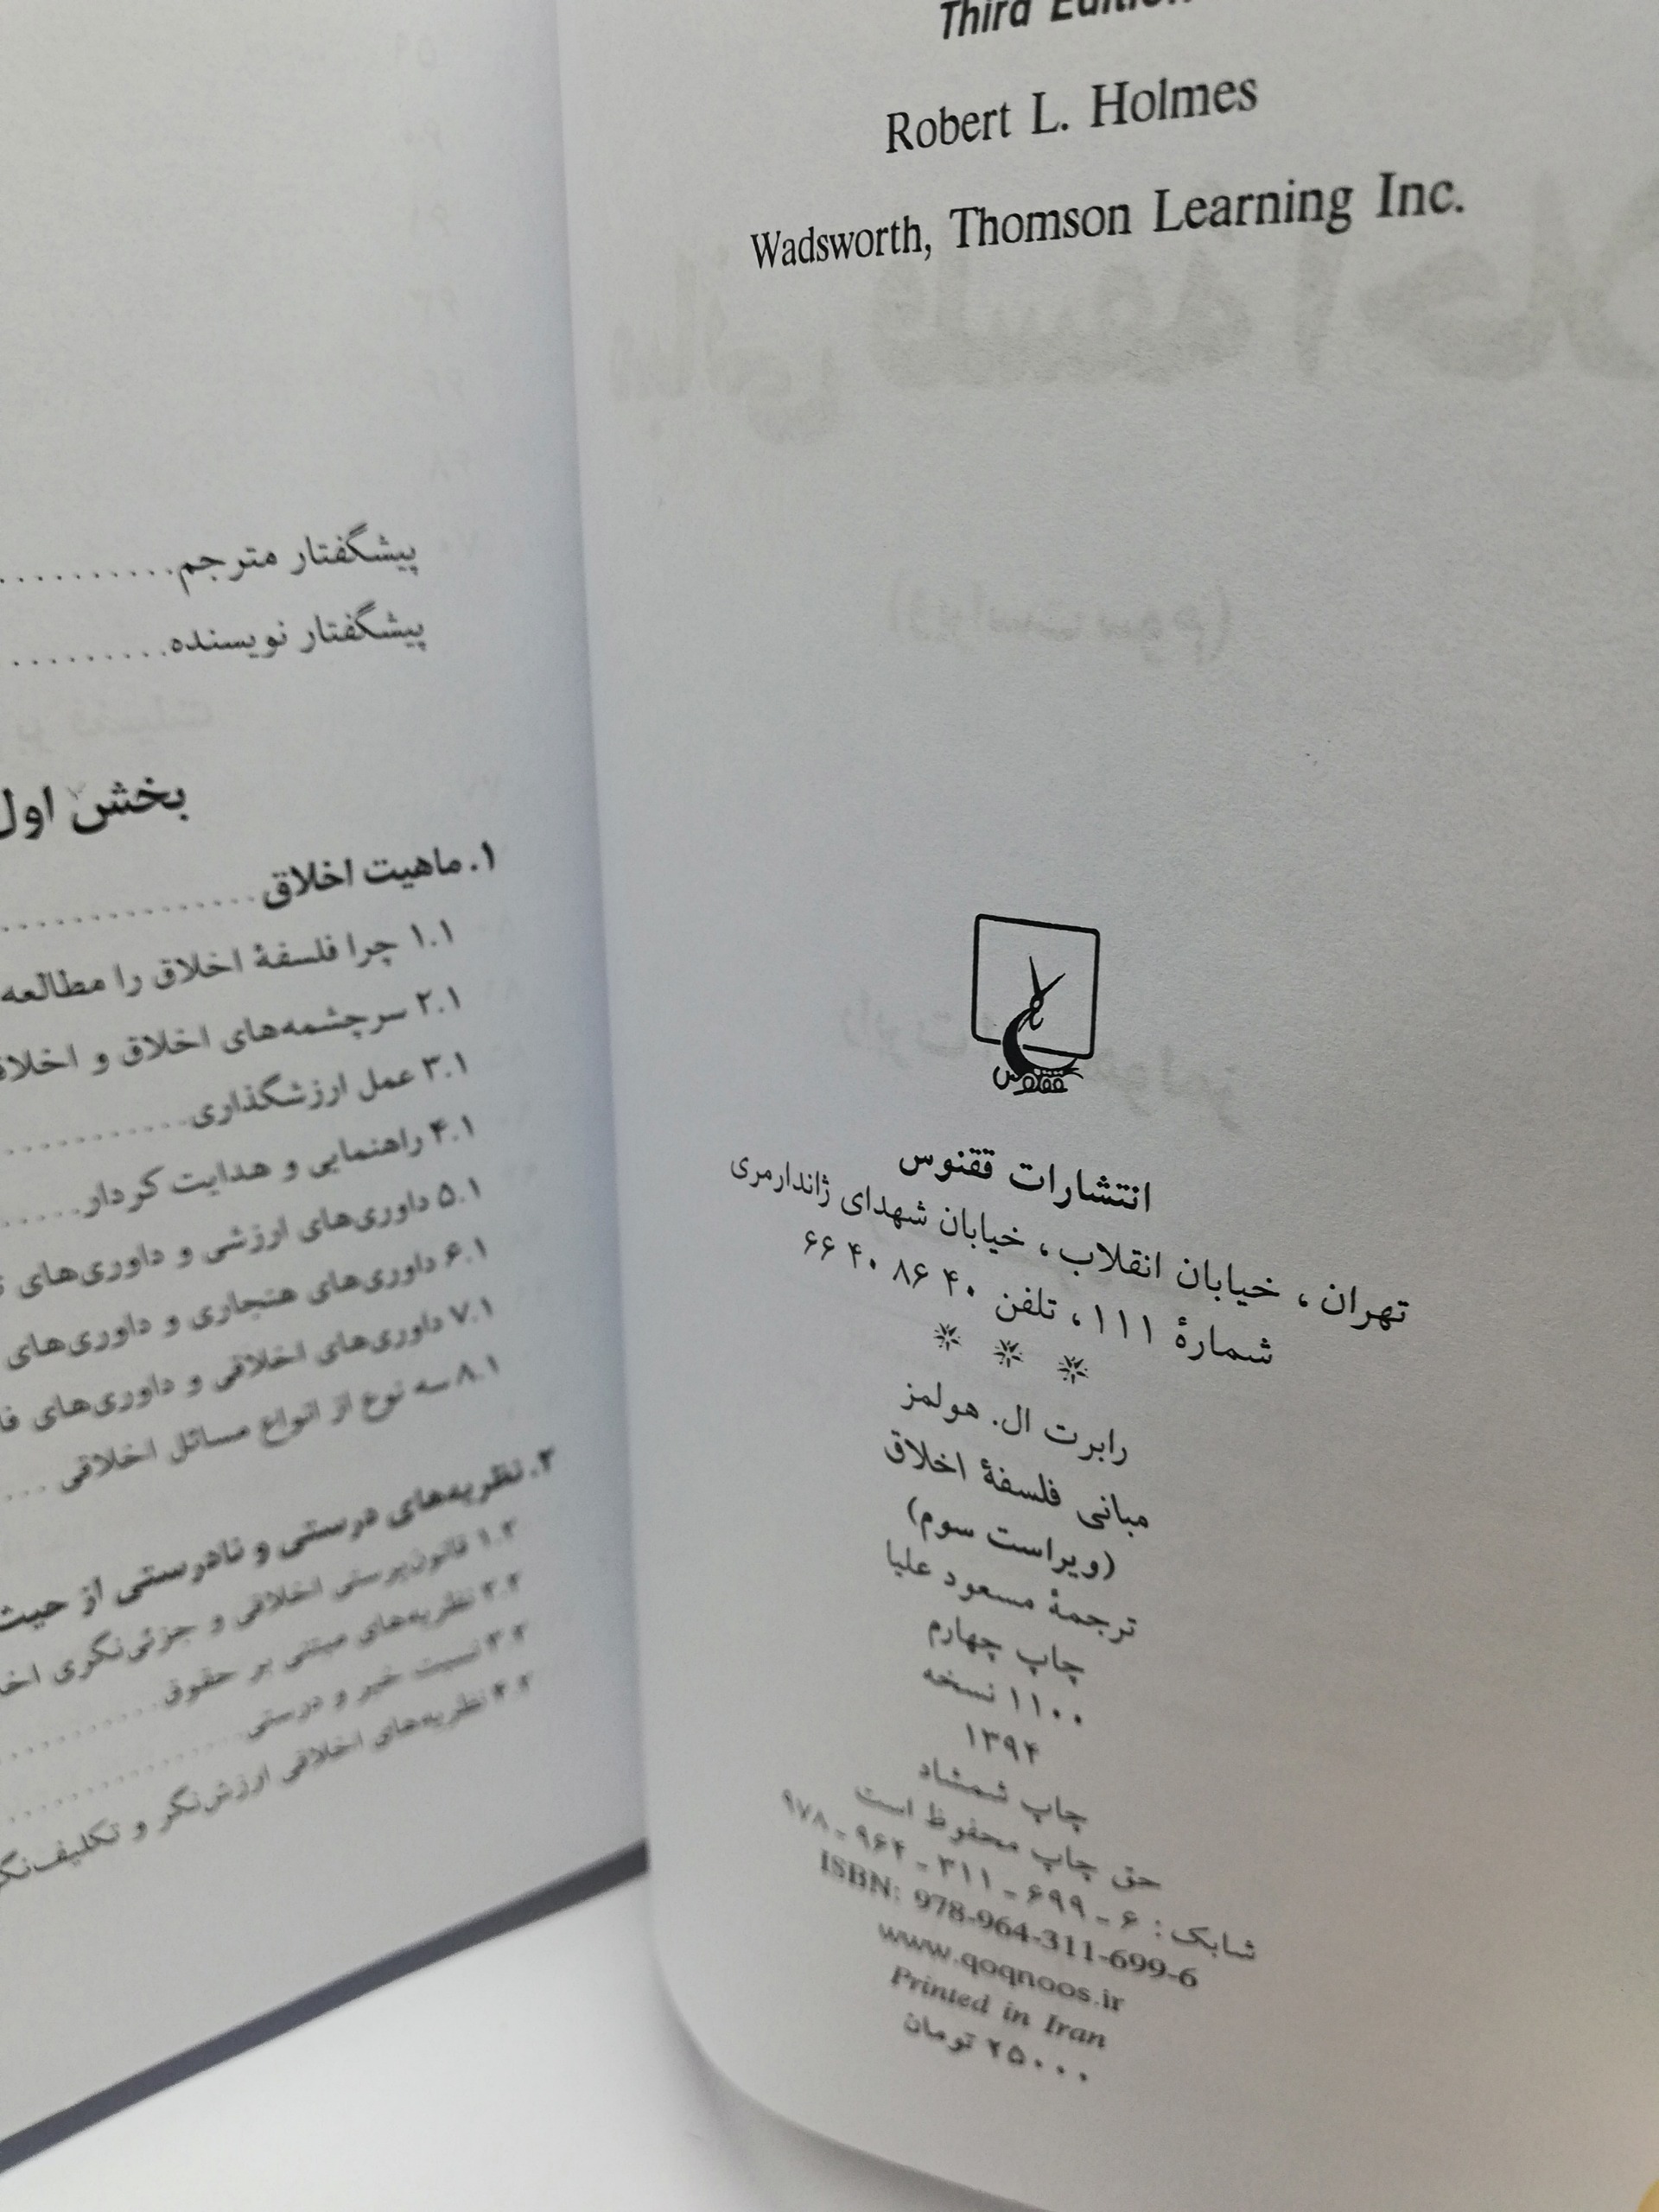 Third Edition
Robert L. Holmes
Wadsworth, Thomson Learning Inc.
ققنوس
انتشارات ققنوس
تهران، خیابان انقلاب، خیابان شهدای ژاندارمری
شمارهٔ ۱۱۱، تلفن ۴۰ ۸۶ ۴۰ ۶۶
* * *
رابرت ال. هولمز
مبانی فلسفهٔ اخلاق
(ویراست سوم)
ترجمهٔ مسعود علیا
چاپ چهارم
۱۱۰۰ نسخه
۱۳۹۴
چاپ شمشاد
حق چاپ محفوظ است
شابک: ۶ ـ ۶۹۹ ـ ۳۱۱ ـ ۹۶۴ ـ ۹۷۸
ISBN: 978-964-311-699-6
www.qoqnoos.ir
Printed in Iran
۲۵۰۰۰ تومان
پیشگفتار مترجم..........
پیشگفتار نویسنده..........
بخش اول
۱. ماهیت اخلاق..............
۱.۱ چرا فلسفهٔ اخلاق را مطالعه
۲.۱ سرچشمه‌های اخلاق و
۳.۱ عمل ارزشگذاری..............
۴.۱ راهنمایی و هدایت کردار.....
۵.۱ داوری‌های ارزشی و داوری‌های
۶.۱ داوری‌های هنجاری و داوری‌های
۷.۱ داوری‌های اخلاقی و داوری‌های
۸.۱ سه نوع از انواع مسائل اخلاقی ...
۲. نظریه‌های درستی و نادرستی از حیث
۱.۲ قانون‌پرستی اخلاقی و جزئی‌نگری
۲.۲ نظریه‌های مبتنی بر حقوق..........
۳.۲ نسبت خیر و درستی..............
۴.۲ نظریه‌های اخلاقی ارزش‌نگر و